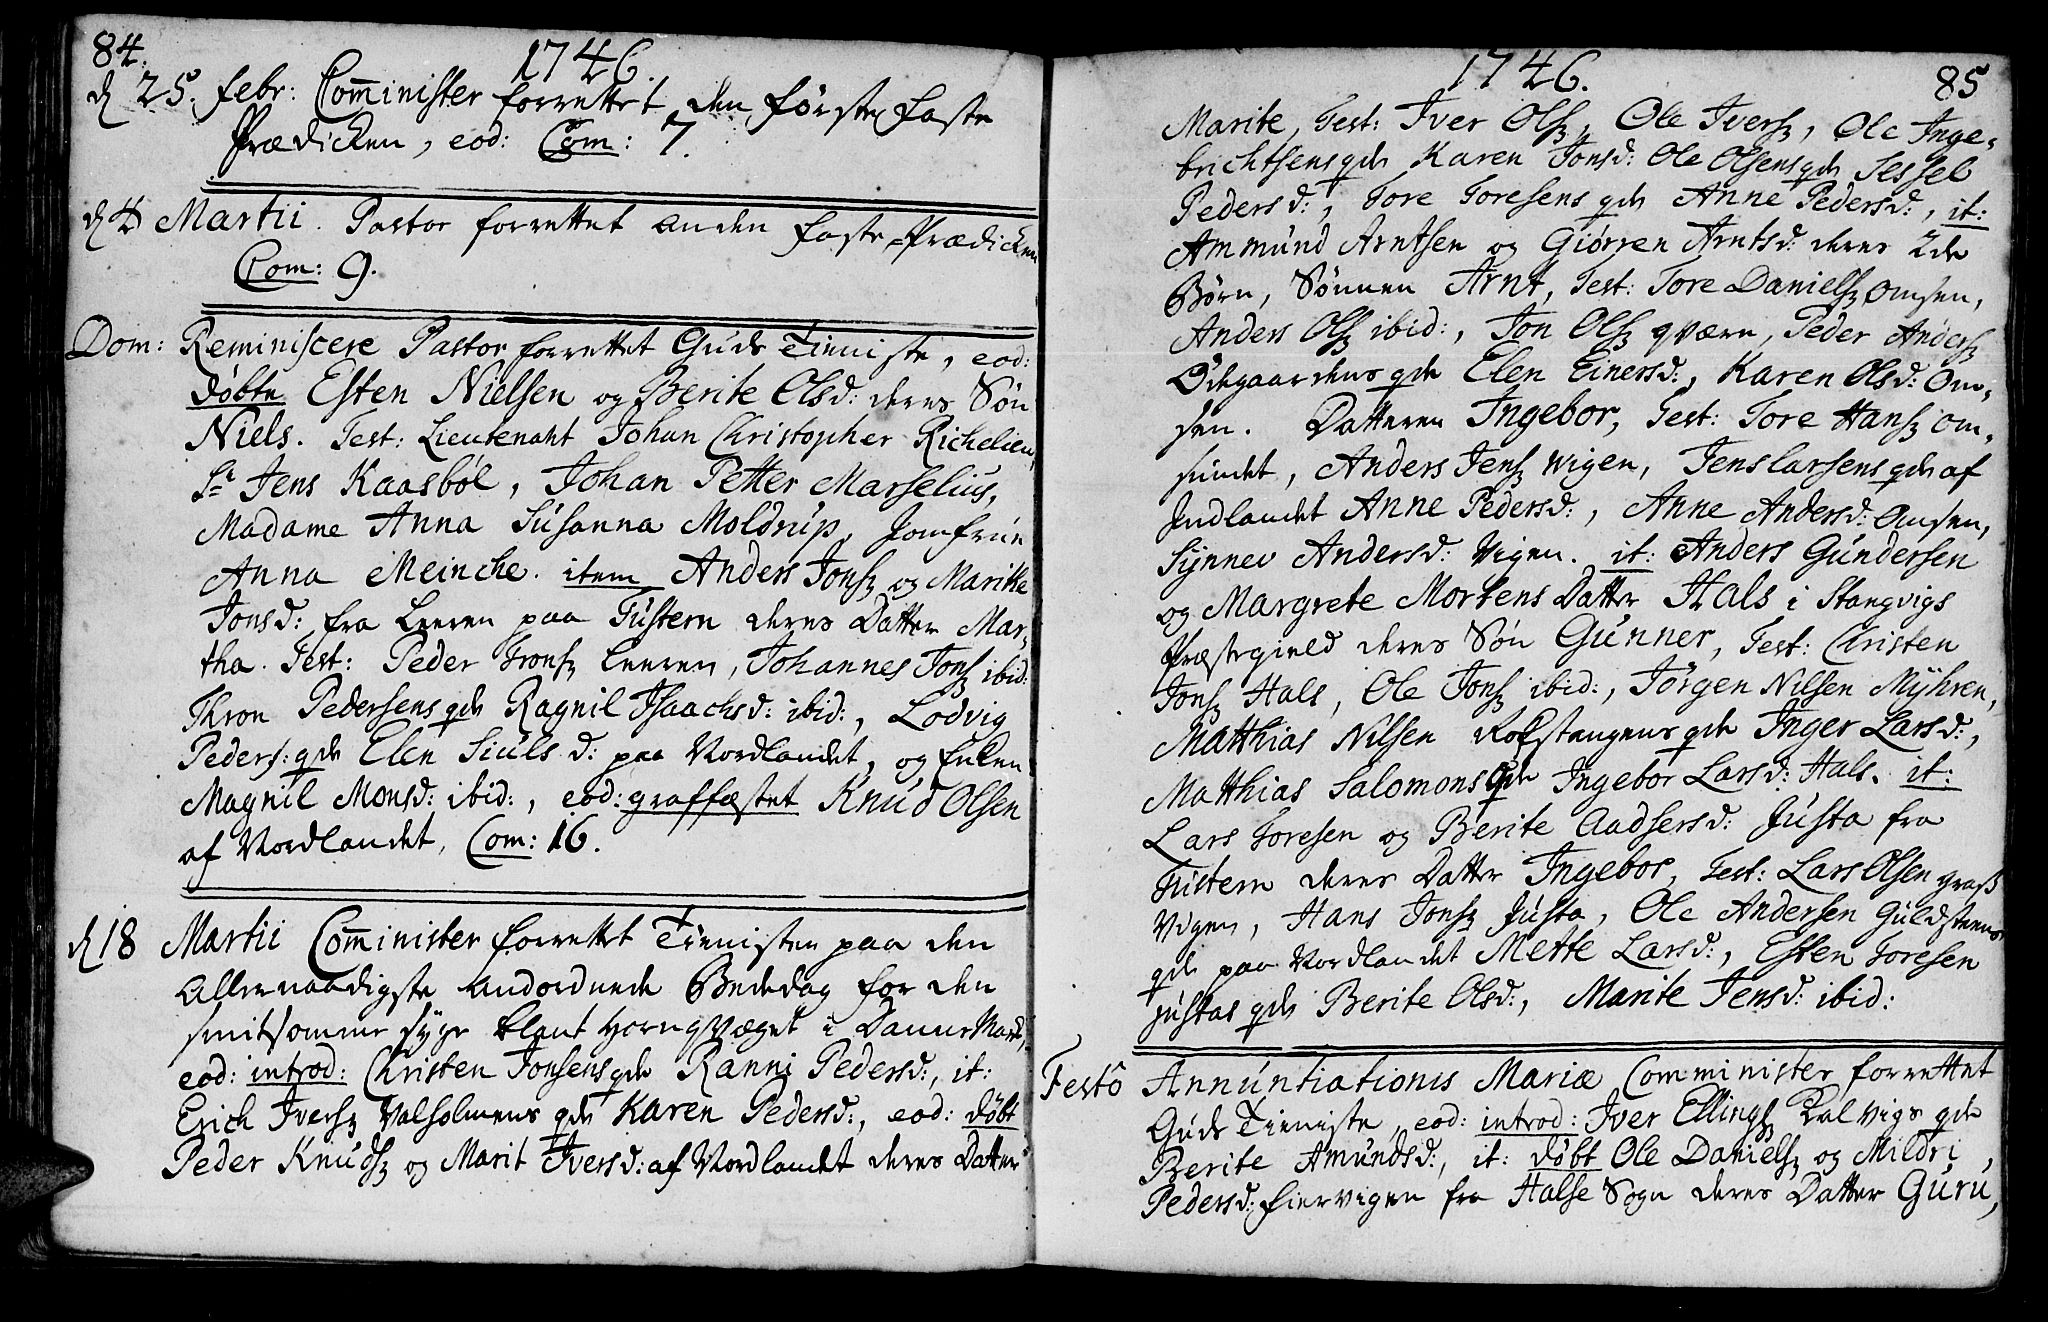 84.
1746.
d 25. febr: Com̄inister forrettet den første faste
Prædicken, eod: Com: 7.
d 4 Martii. Pastor forrettet anden faste-Prædicken
Com: 9.
Dom: Reminiscere Pastor forrettet Guds Tieniste, eod:
døbte Esten Nielsen og Berite Olsd: deres Søn
Niels. Test: Lieutenant Johan Christopher Richelieu,
Sr Jens Kaasbøl, Johan Petter Marselius,
Madame Anna Susanna Moldrup, Jomfrue
Anna Meinche. item Anders Jonsz og Marithe
Jonsd: fra Leeren paa Tustern deres Datter Mar-
tha. Test: Peder Tronsz Leeren, Johannes Jonsz ibid:
Thron Pedersens qde Ragnil Isaachsd: ibid:, Lodvig
Peders: qde Elen Siulsd: paa Nordlandet, og Enken
Magnil Monsd: ibid:, eod: graffæstet Knud Olsen
af Nordlandet, Com: 16.
d 18 Martii Com̄inister forrettet Tienisten paa den
Allernaadigste anordnede Bededag for den
smitsomme syge blant Hornqvæget i Dannemark,
eod: introd: Christen Jonsens qde Ranni Pedersd:, it:
Erich Iversz Valholmens qde Karen Pedersd:, eod: døbt
Peder Knudsz og Marit Iversd: af Nordlandet deres Datter
1746.
85
Marite, Test: Iver Olsz, Ole Iversz, Ole Inge-
brichtsens qde Karen Jonsd: Ole Olsens qde Sessel
Pedersd:, Tore Toresens qde Anne Pedersd:, it:
Ammund Arntsen og Giørren Arntsd: deres 2de
Børn, Sønnen Arnt, Test: Tore Danielsz Omsen,
Anders Olsz ibid:, Jon Olsz qværn, Peder Andersz
Ødegaardens qde Elen Einersd:, Karen Olsd: Om-
sen. Datteren Ingebor, Test: Tore Hansz Om-
sundet, Anders Jensz Wigen, Jens Larsens qde af
Indlandet Anne Pedersd:, Anne Andersd: Omsen,
Synnev Andersd: Vigen. it: Anders Gundersen
og Margrete Mortens Datter Hals i Stangvigs
Præstegield deres Søn Gunner, Test: Christen
Jonsz Hals, Ole Jonsz ibid:, Jørgen Nilsen Myhren,
Matthias Nilsen Rolstangens qde Inger Larsd:,
Matthias Salomons qde Ingebor Larsd: Hals. it:
Lars Toresen og Berite Aadsersd: Justa fra
Tustern deres Datter Ingebor, Test: Lars Olsen Graß
Vigen, Hans Jonsz Justa, Ole Andersen Guldsteens
qde paa Nordlandet Mette Larsd:, Esten Toresen
Justas qde Berite Olsd:, Marite Jensd: ibid:
Festô Annuntiationis Mariæ Comminister forrettet
Guds Tieniste, eod: introd: Iver Ellingsz Kalvigs qde
Berite Amundsd:, it: døbt Ole Danielsz og Mildri
Pedersd: Fiervigen fra Halse Sogn deres Datter Guru,